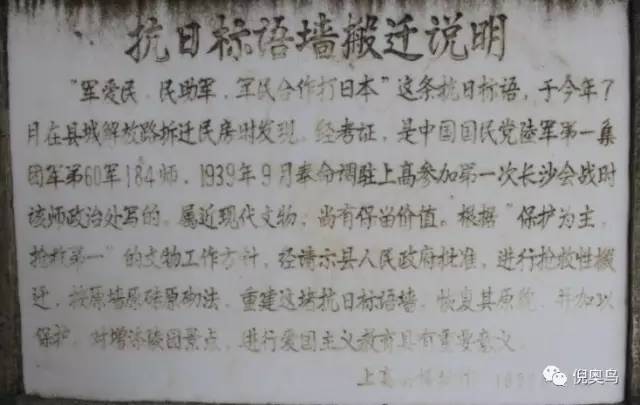 抗日标语墙搬迁说明
“军爱民．民助军．军民合作打日本”这条抗日标语，于今年7
月在县城解放路拆迁民房时发现．经考证，是中国国民党陆军第一集
团军第60军184师．1939年9月奉命调驻上高参加第一次长沙会战时
该师政治处写的．属近现代文物，尚有保留价值。根据“保护为主．
抢救第一”的文物工作方针，经请示县人民政府批准，进行抢救性搬
迁，按原墙原砖原砌法．重建这堵抗日标语墙．恢复其原貌．并加以
保护．对增添陵园景点，进行爱国主义教育具有重要意义．
上高
倪奥鸟